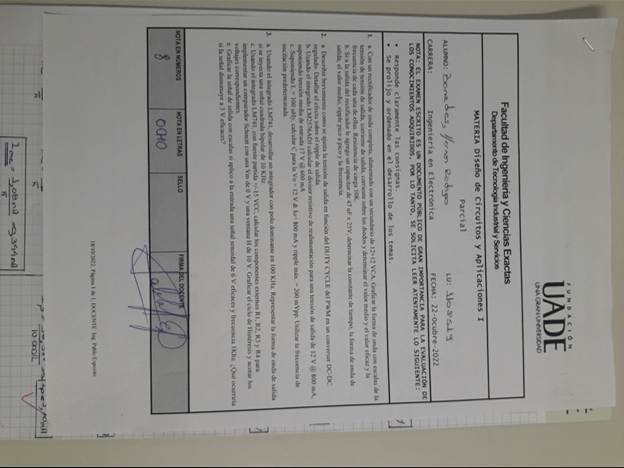 FUNDACIÓN
UADE
UNA GRAN UNIVERSIDAD
Facultad de Ingeniería y Ciencias Exactas
Departamento de Tecnología Industrial y Servicios
MATERIA Diseño de Circuitos y Aplicaciones I
Parcial
ALUMNO: LU:
CARRERA: Ingeniería en Electrónica FECHA: 22-octubre-2022
NOTA: EL EXAMEN ESCRITO ES UN DOCUMENTO PÚBLICO DE GRAN IMPORTANCIA PARA LA EVALUACIÓN DE
LOS CONOCIMIENTOS ADQUIRIDOS. POR LO TANTO, SE SOLICITA LEER ATENTAMENTE LO SIGUIENTE:
• Responde claramente las consignas.
• Se prolijo y ordenado en el desarrollo de los temas.
1. a. Con un rectificador de onda completa, alimentado con un secundario de 12+12 VCA. Graficar la forma de onda con escalas de la
tensión de entrada, tensión de salida, corriente de salida, corriente sobre los diodos y determinar el valor medio y el valor eficaz y la
frecuencia de cada una de ellas. Resistencia de carga 10K.
b. Si a la salida del rectificador le agrego un capacitor de 47 uF x 25V, determinar la constante de tiempo, la forma de onda de
salida, el valor medio, ripple pico a pico y la frecuencia.
2. a. Describir brevemente como se ajusta la tensión de salida en función del DUTY CYCLE del PWM en un conversor DC-DC
regulado. Detallar el efecto sobre el ripple de salida.
b. Usando el integrado LM2576ADJ calcular el divisor resistivo de realimentación para una tensión de salida de 12 V @ 800 mA,
suponiendo tensión media de entrada 17 V @ 600 mA
c. Suponiendo L = 100 uHy, calcular C para la Vo = 12 V & Io= 800 mA y ripple máx. = 200 mVpp. Utilizar la frecuencia de
oscilación predeterminada.
3. a. Usando el integrado LM741, desarrollar un integrador con polo dominante en 100 KHz. Representar la forma de onda de salida
si se inyecta una señal cuadrada bipolar de 10 KHz.
c. Usando el integrado LM741, con fuente partida +/-15 VCC, calcular los componentes externos R1, R2, R3 y R4 para
implementar un comparador Schmitt con una Vin de 0 V y una ventana H de 10 V. Graficar el ciclo de Histéresis y acotar los
voltajes correspondientes.
e. Graficar la señal de salida con escalas si aplico a la entrada una señal senoidal de 6 V eficaces y frecuencia 1Khz. ¿Que ocurriría
si la señal disminuye a 3 V eficaces?
NOTA EN NÚMEROS NOTA EN LETRAS SELLO FIRMA DEL DOCENTE
8 OCHO
18/10/2022, Página 1 de 1, DOCENTE: Ing. Pablo Esposito